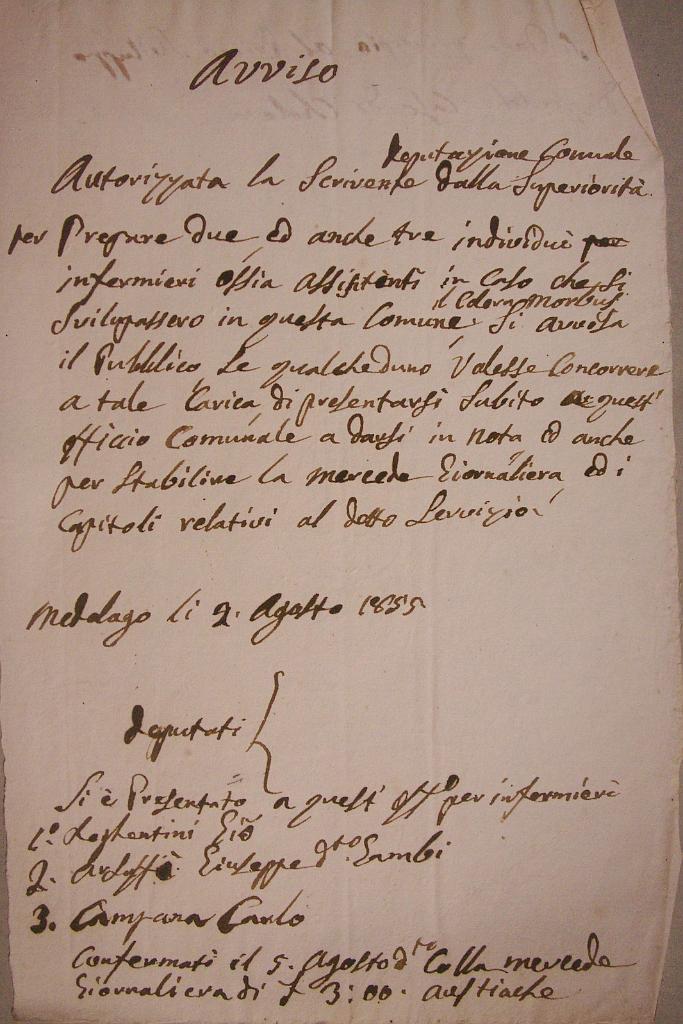 Avviso
deputazione Comunale
Autorizzata la Scrivente dalla Superiorità
per Pregare due, ed anche tre individui per
infermieri ossia assistenti in Caso che si
il Colera Morbus
Svilupassero in questa Comune, Si avvisa
il Pubblico Se qualcheduno Volesse Concorrere
a tale Carica, di presentarsi Subito a quest'
Officio Comunale a darsi in nota ed anche
per Stabilire la mercede Giornaliera, ed i
Capitoli relativi al detto Servizio.
Medolago li 2. Agosto 1855
deputati
Si è Presentato a quest' Off.o per infermieri
1.o Gio
2. Giuseppe d.to Gambi
3. Campana Carlo
Confermati il 5. Agosto d.to Colla mercede
Giornaliera di 3:00. austiache